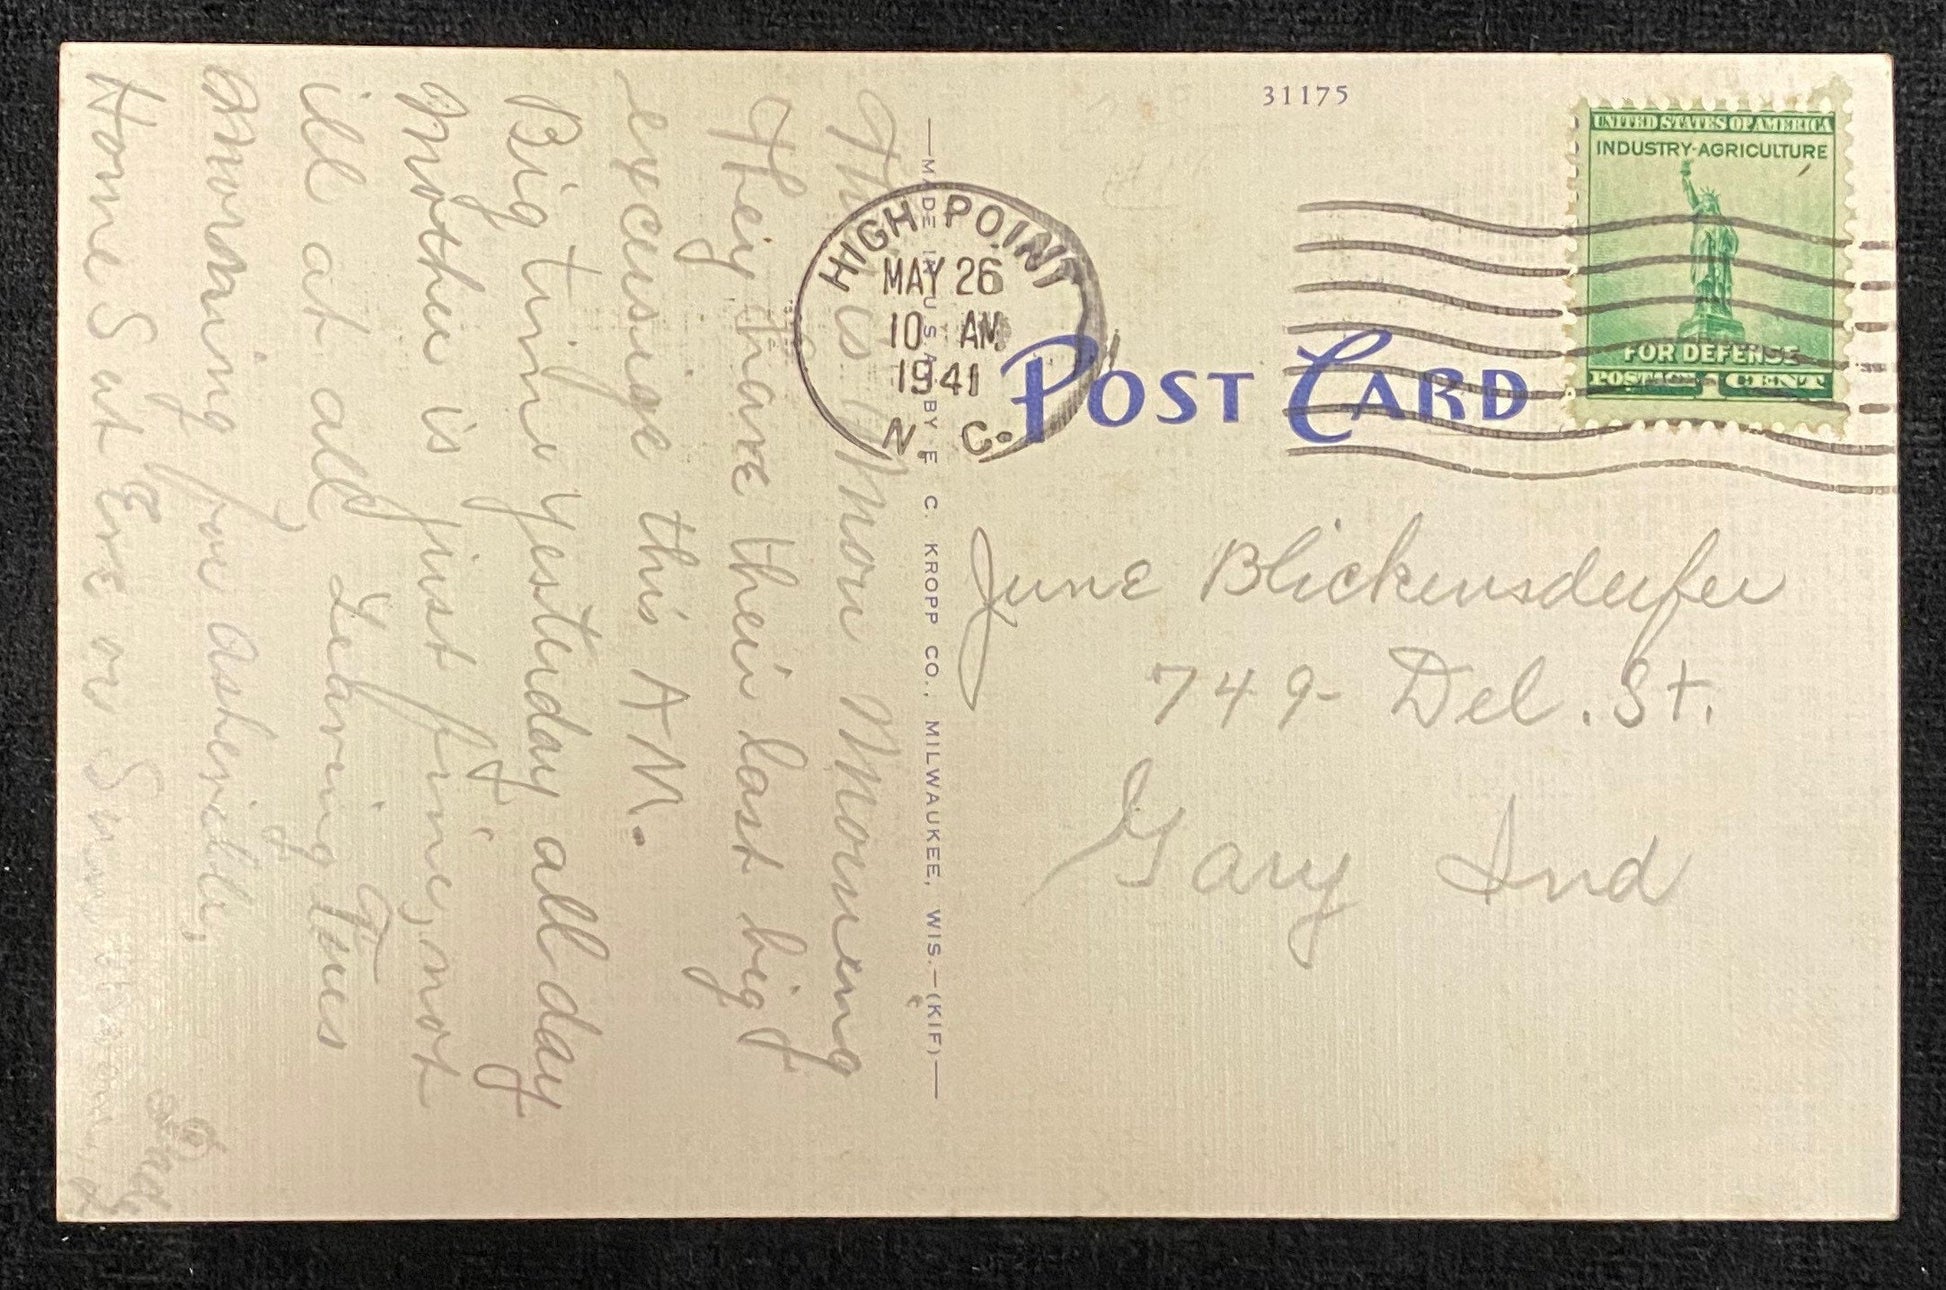 31175
UNITED STATES OF AMERICA
INDUSTRY-AGRICULTURE
FOR DEFENSE
POSTAGE 1 CENT
HIGH POINT
MAY 26
10 AM
1941
N. C.
POST CARD
—MADE IN U.S.A. BY E. C. KROPP CO., MILWAUKEE, WIS.—(KIF)—
This is Mon Morning
They have their last big
excusige this A M.
Big time yesterday all day
Mother is just fine, not
ill at all Leaving Tues
morning for Asheville,
Home Sat Eve or Sun
June Blickensderfer
749- Del. St.
Gary Ind